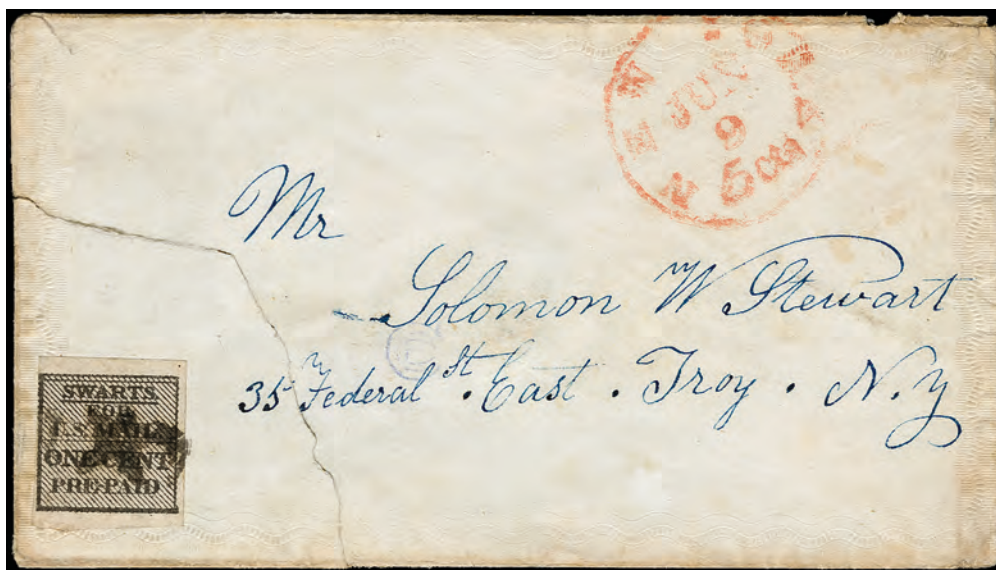 NEW YORK
JUN
9
5 cts
Mr
Solomon W Stewart
35 Federal St. East. Troy. N.Y
SWARTS
FOR
U.S. MAIL
ONE CENT
PRE-PAID